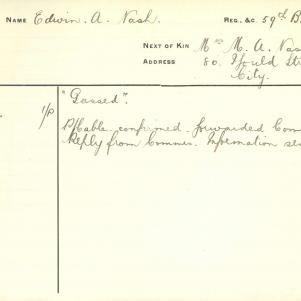 NAME Edwin. A. Nash. REG. &C. 59th B
NEXT OF KIN Mrs M. A. Nas
ADDRESS 80. Gould Str
City.
1/P "Gassed".
P/Cable confirmed forwarded Com
Reply from Commrs. Information se